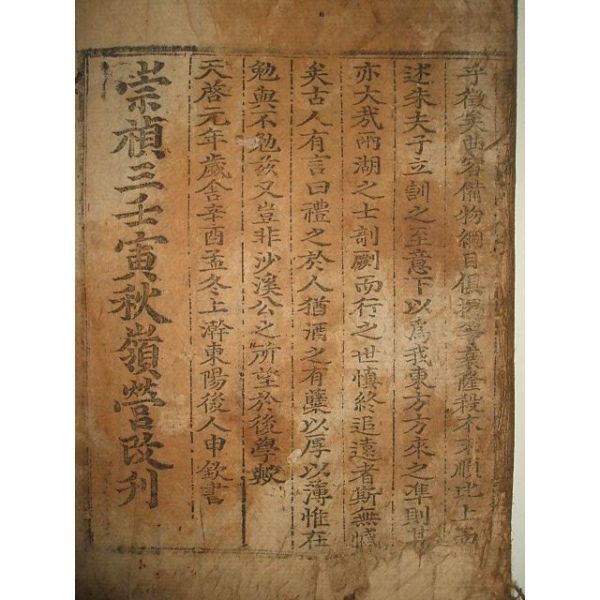 乎徵矣曲容備物綱目俱擧等衰隆殺本末順比上而
述朱夫子立訓之至意下以爲我東方方來之準則其
亦大哉兩湖之士剞劂而行之世愼終追遠者斯無憾
矣古人有言曰禮之於人猶酒之有蘗以厚以薄惟在
勉與不勉玆又豈非沙溪公之所望於後學歟
天啓元年歲舍辛酉孟冬上澣東陽後人申欽書
崇禎三壬寅秋嶺營改刊